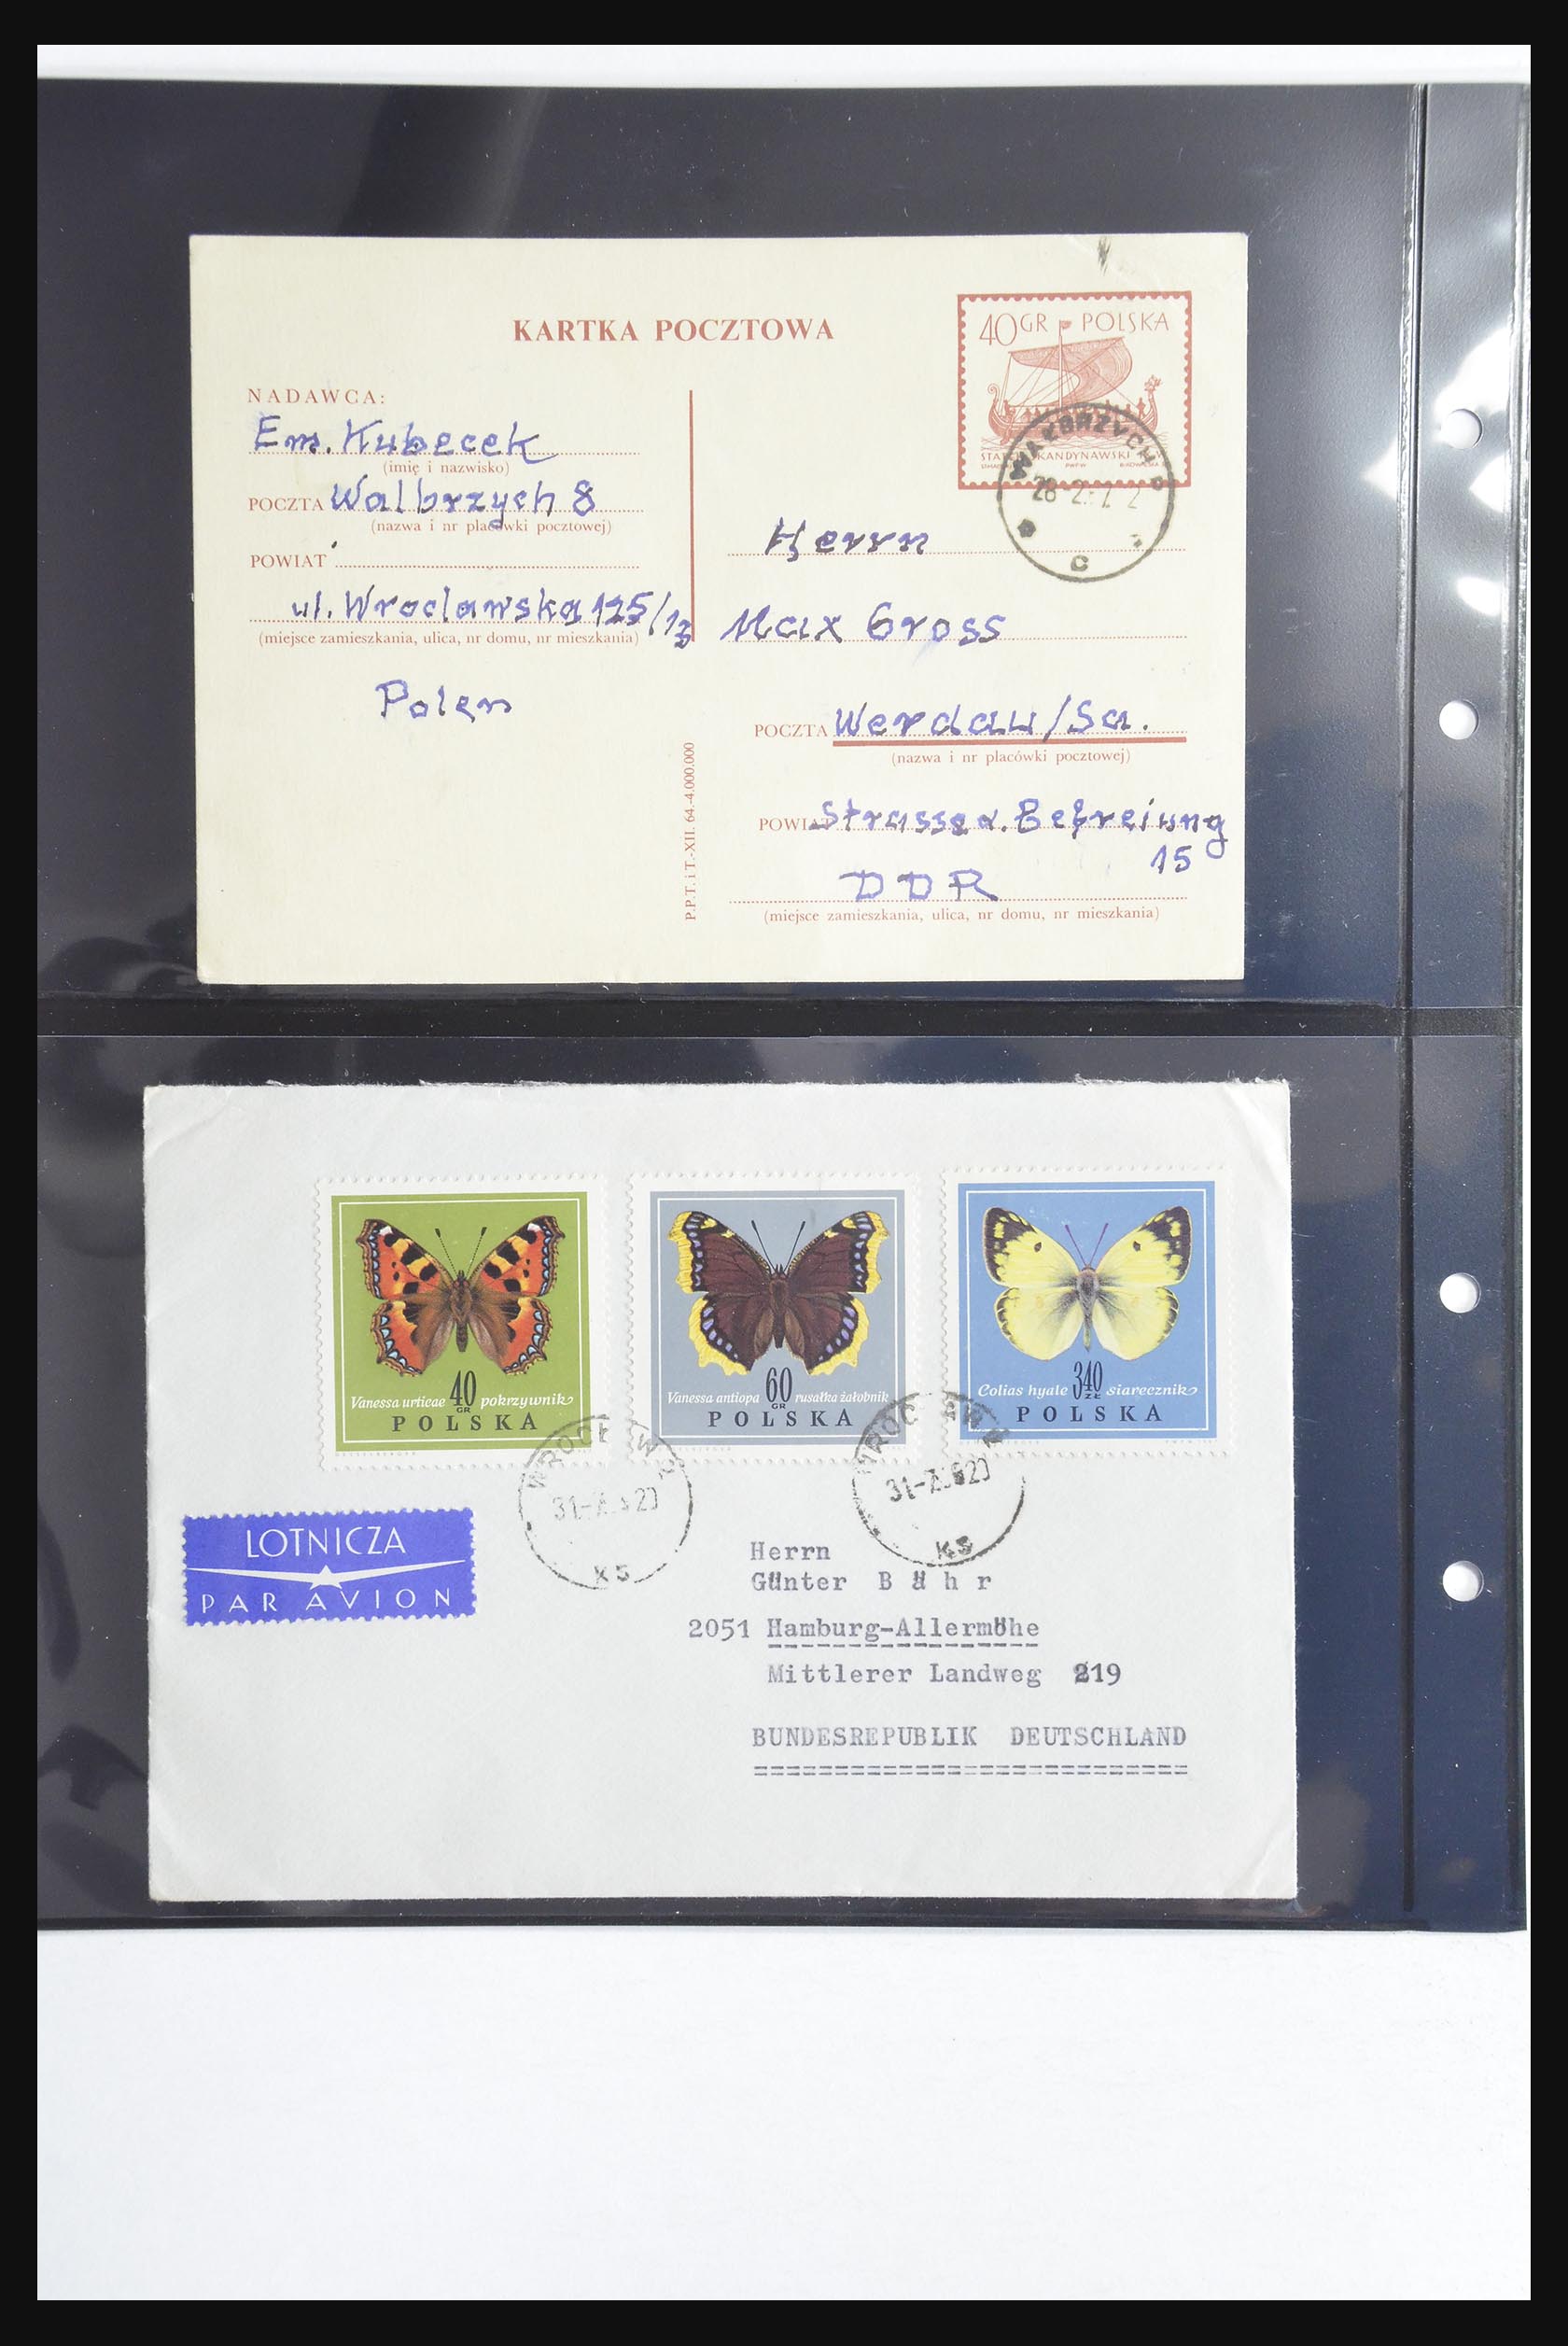 KARTKA POCZTOWA
40GR POLSKA
NADAWCA:
Em. Kubecek
(imię i nazwisko)
POCZTA Walbrzych 8
(nazwa i nr placówki pocztowej)
POWIAT
ul. Wroclawska 125/13
(miejsce zamieszkania, ulica, nr domu, nr mieszkania)
Polen
P.P.T. i T.-XII. 64.-4.000.000
WAŁBRZYCH
C
Herrn
Max Gross
POCZTA Werdau/Sa.
(nazwa i nr placówki pocztowej)
POWIAT Strasse d. Befreiung
15
DDR
(miejsce zamieszkania, ulica, nr domu, nr mieszkania)
Vanessa urticae 40 GR pokrzywnik
POLSKA
Vanessa antiopa 60 GR rusałka żałobnik
POLSKA
Colias hyale 340 ZŁ siarecznik
POLSKA
K5
K5
LOTNICZA
PAR AVION
Herrn
Günter Bähr
2051 Hamburg-Allermöhe
Mittlerer Landweg 219
BUNDESREPUBLIK DEUTSCHLAND